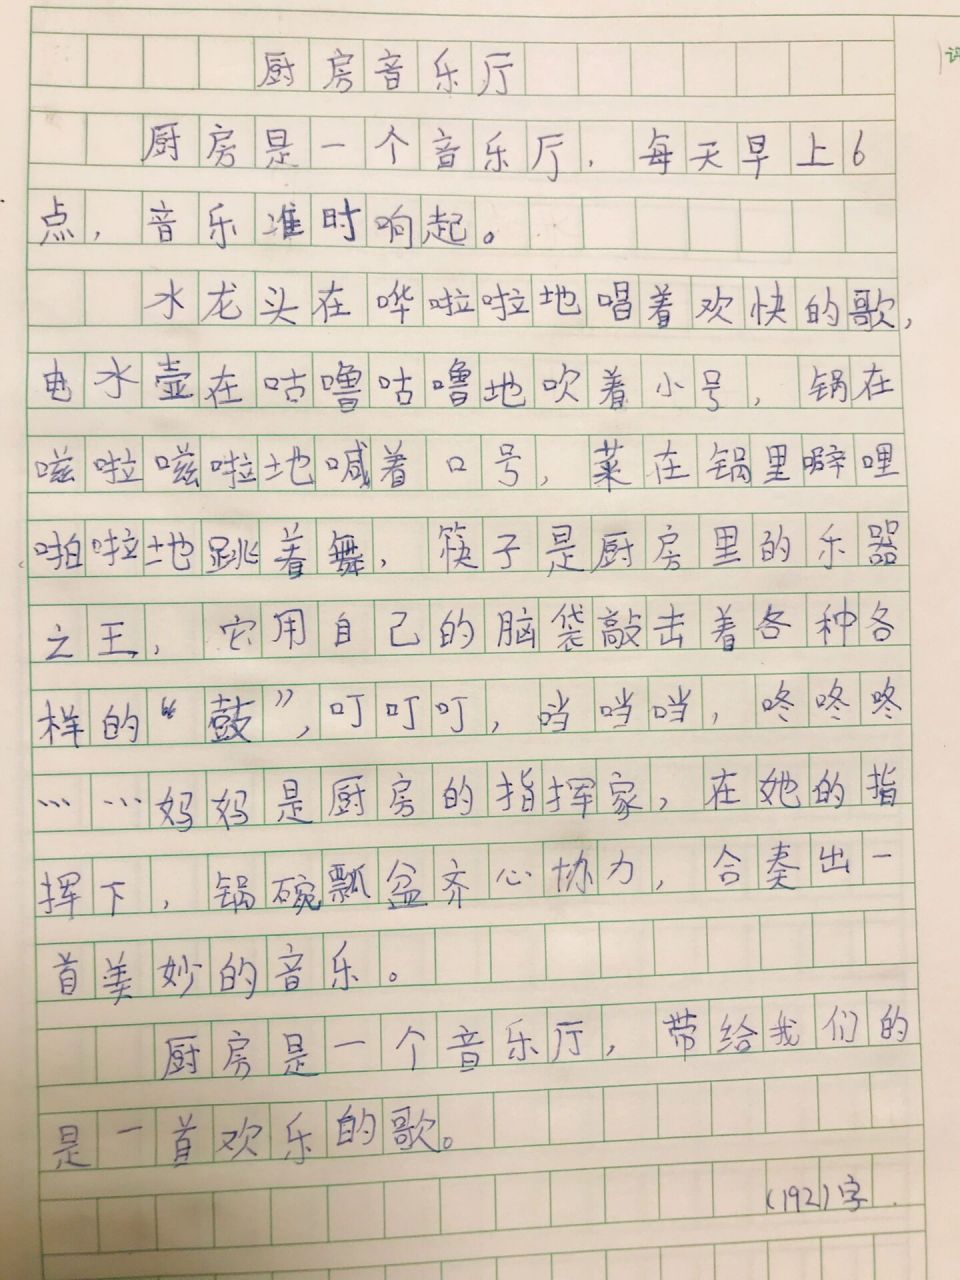 厨房音乐厅
厨房是一个音乐厅，每天早上6
点，音乐准时响起。
水龙头在哗啦啦地唱着欢快的歌，
电水壶在咕噜咕噜地吹着小号，锅在
嗞啦嗞啦地喊着口号，菜在锅里噼哩
啪啦地跳着舞，筷子是厨房里的乐器
之王，它用自己的脑袋敲击着各种各
样的“鼓”，叮叮叮，当当当，咚咚咚
……妈妈是厨房的指挥家，在她的指
挥下，锅碗瓢盆齐心协力，合奏出一
首美妙的音乐。
厨房是一个音乐厅，带给我们的
是一首欢乐的歌。
(192)字